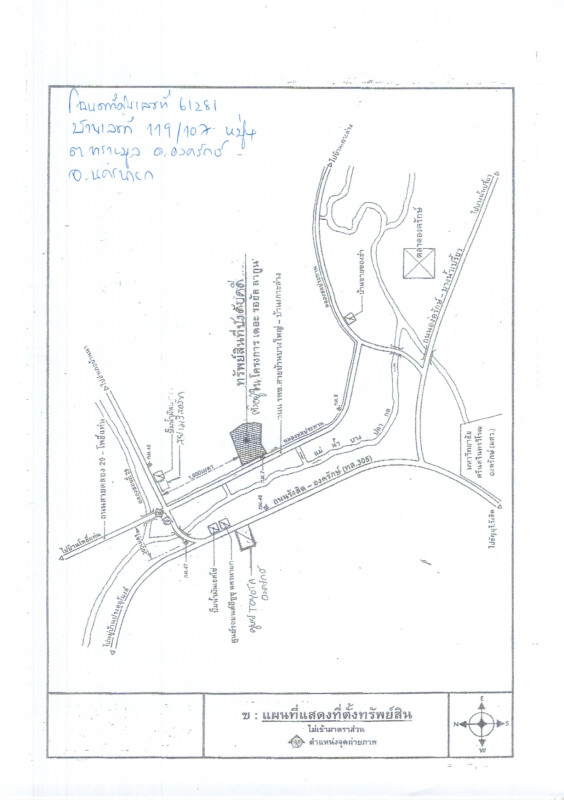 โฉนดที่ดินเลขที่ 61281
บ้านเลขที่ 119/107 หมู่4
ต.ทรายมูล อ.องครักษ์
จ.นครนายก
ไปบ้านเกาะล่าง
ไปบางน้ำเปรี้ยว
ตลาดองครักษ์
ถนนองครักษ์ - บางน้ำเปรี้ยว
บ้านขายของชำ
คลองชลประทาน
ทรัพย์สินที่บังคับคดี
ตั้งอยู่ในโครงการ เดอะ รอยัล ลากูน
ถนน รพช.สายบ้านบางใหญ่ - บ้านเกาะล่าง
ถนนสายคลอง 29 - โพธิ์แท่น
ไปบ้านโพธิ์แท่น
คลองชลประทาน
กม.8
กม.7
1,900เมตร
แม่ น้ำ บาง ปลา กด
กม.48
ถนนรังสิต - องครักษ์ (ทล.305)
มหาวิทยาลัย
ศรีนครินทรวิโรฒ
องครักษ์ (มศว.)
ไปธัญบุรี/รังสิต
กม.47
ปั๊มน้ำมันเอสโซ่
ศูนย์รถยนต์อีซูซุ นครนายก
ศูนย์ TOYOTA
องครักษ์
ข : แผนที่แสดงที่ตั้งทรัพย์สิน
ไม่เข้ามาตราส่วน
ตำแหน่งจุดถ่ายภาพ
E
N
S
W